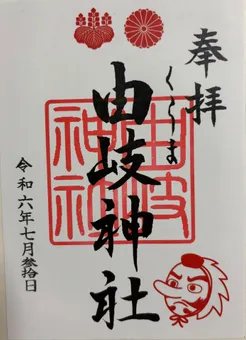 奉拝
くらま
由岐神社
由岐神社
令和六年七月参拾日